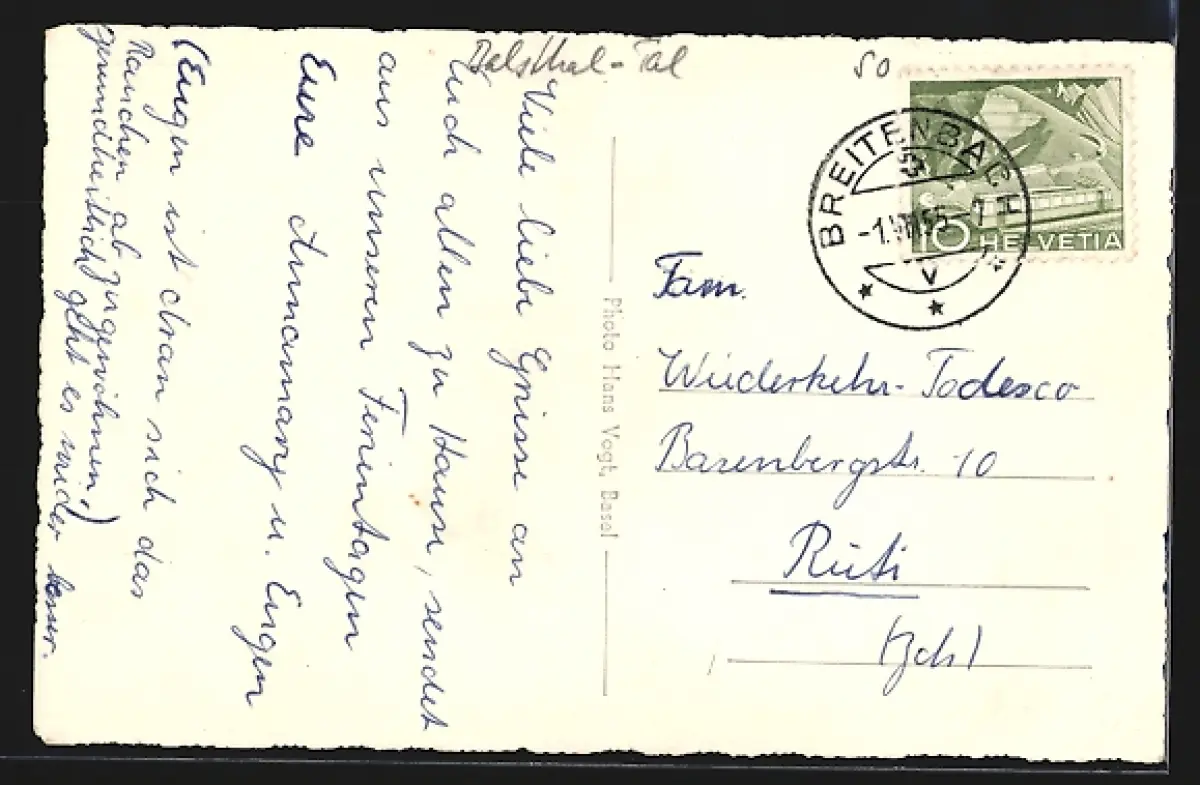 Balsthal-Tal
50
Viele liebe Grüsse an
Euch allen zu Hause, sendet
aus unseren Ferientagen
Eure Annamary u. Eugen
(Eugen ist dran sich das
Rauchen abzugewöhnen,)
gesundheitlich geht es wieder besser.
Photo Hans Vogt, Basel
BREITENBACH
10 HELVETIA
Fam.
Wiederkehr-Todesco
Basenbergstr. 10
Rüti
(Zch)